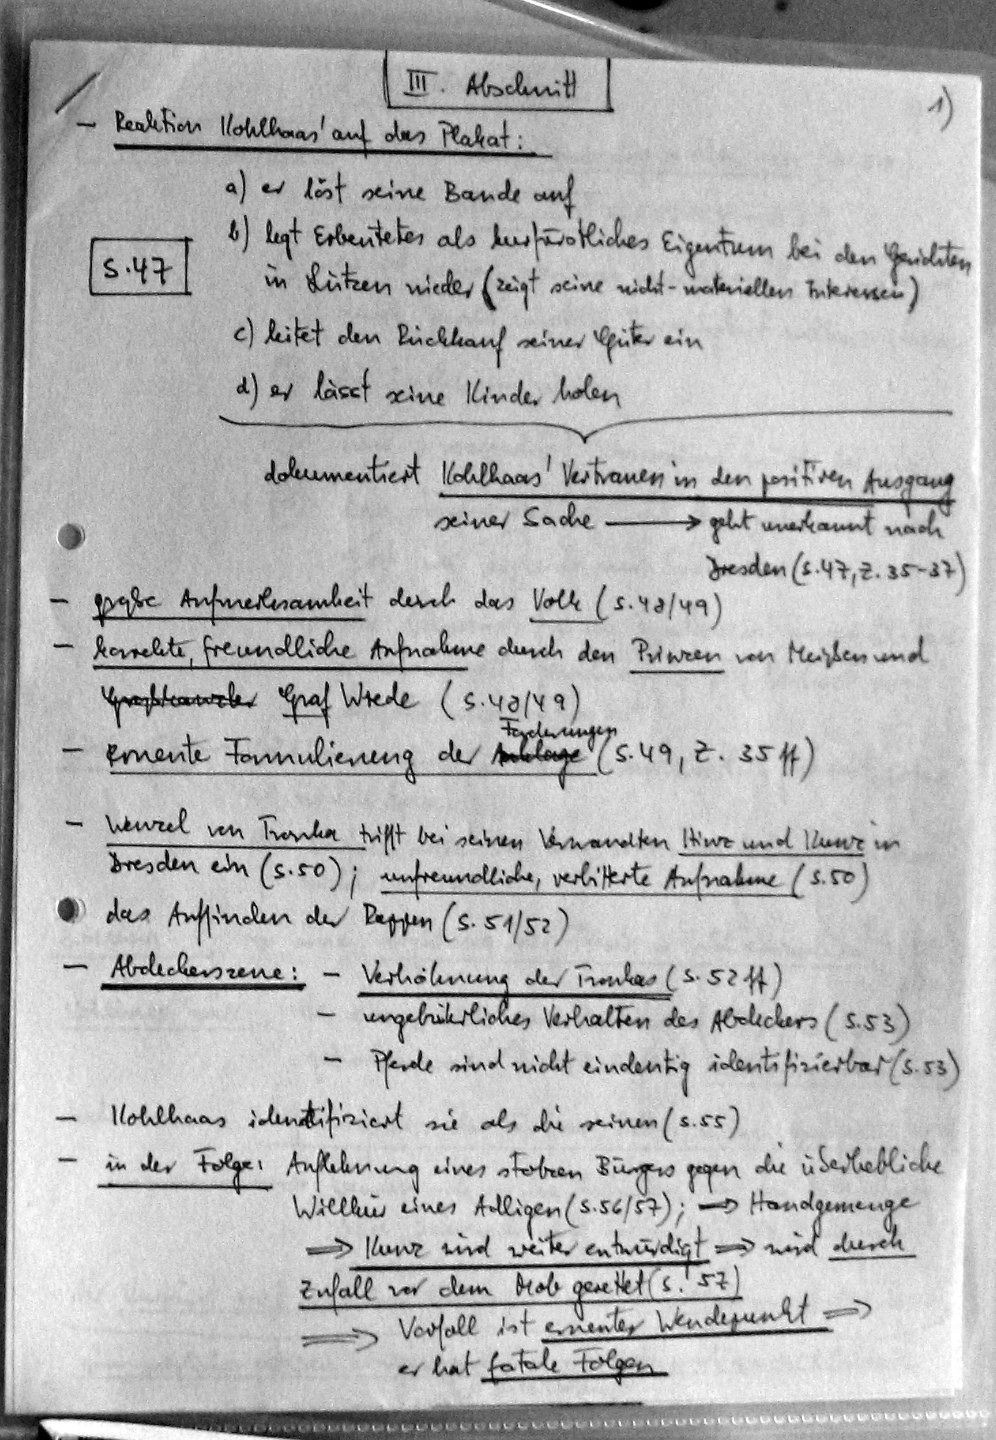 III. Abschnitt
1)
– Reaktion Kohlhaas' auf das Plakat:
a) er löst seine Bande auf
b) legt Erbeutetes als kurfürstliches Eigentum bei den Gerichten
S.47
in Lützen nieder (zeigt seine nicht-materiellen Interessen)
c) leitet den Rückkauf seiner Güter ein
d) er lässt seine Kinder holen
dokumentiert Kohlhaas' Vertrauen in den positiven Ausgang
seiner Sache → geht unerkannt nach
Dresden (S.47, Z. 35-37)
– große Aufmerksamkeit durch das Volk (S.48/49)
– korrekte, freundliche Aufnahme durch den Prinzen von Meißen und
Großkanzler Graf Wrede (S.48/49)
Forderungen
– erneute Formulierung der Anklage (S.49, Z. 35 ff)
– Wenzel von Tronka trifft bei seinen Verwandten Hinz und Kunz in
Dresden ein (S.50); unfreundliche, verbitterte Aufnahme (S.50)
das Auffinden der Rappen (S.51/52)
– Abdeckerszene: – Verhöhnung der Tronkas (S.52 ff)
– ungebührliches Verhalten des Abdeckers (S.53)
– Pferde sind nicht eindeutig identifizierbar (S.53)
– Kohlhaas identifiziert sie als die seinen (S.55)
– in der Folge: Auflehnung eines stolzen Bürgers gegen die überhebliche
Willkür eines Adligen (S.56/57); ⇒ Handgemenge
⇒ Kunz wird weiter entwürdigt ⇒ wird durch
Zufall vor dem Mob gerettet (S. 57)
⇒ Vorfall ist erneuter Wendepunkt ⇒
er hat fatale Folgen